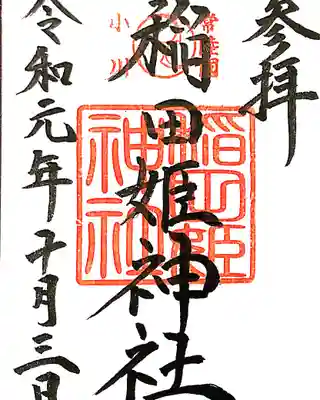 参拝
常陸国
小川
稲田姫神社
稲田姫
神社
令和元年十月三日